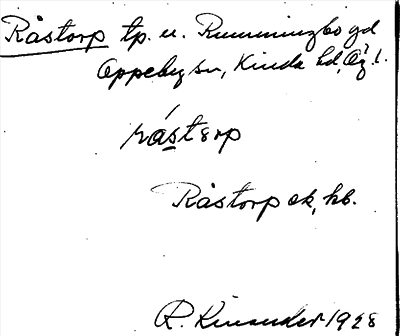 Råstorp tp. u. Rumningbo gd
Oppeby sn, Kinda hd, Ög l.
råstorp
Råstorp ek, kb.
R. Kinander 1928